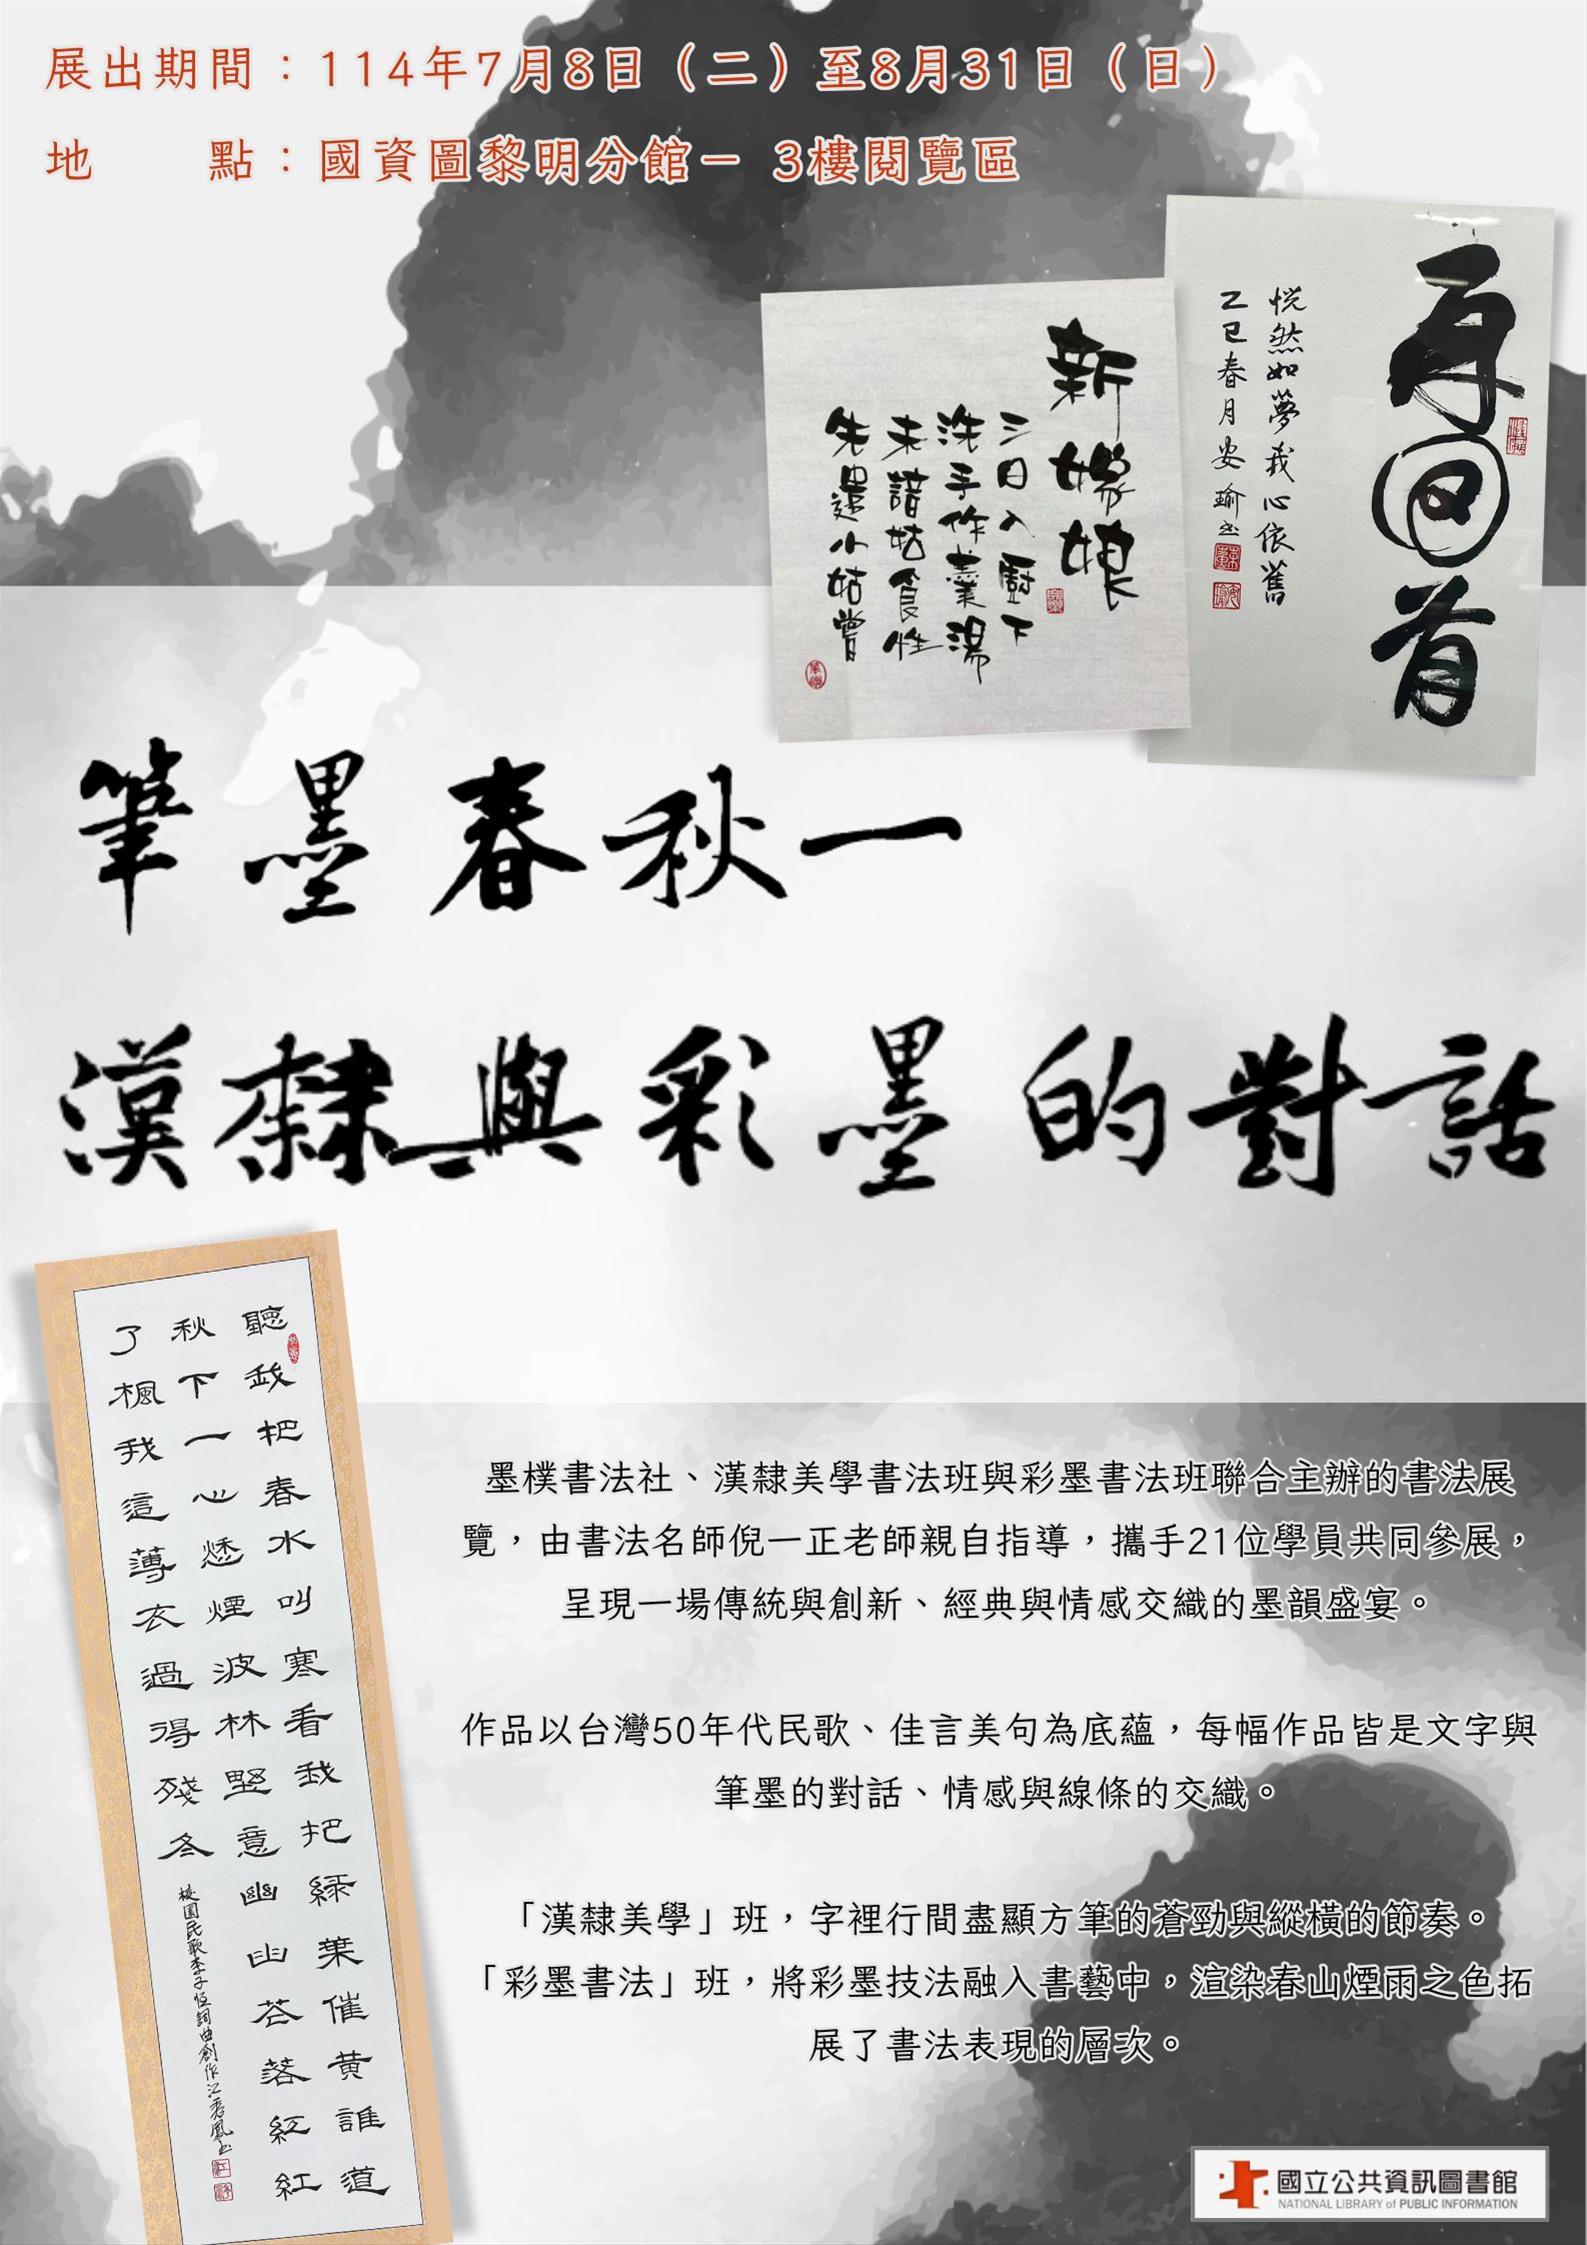 展出期間：114年7月8日（二）至8月31日（日）
地　　點：國資圖黎明分館－ 3樓閱覽區
再回首
恍然如夢我心依舊
乙巳春月安瑜书
新嫁娘
三日入廚下
洗手作羹湯
未諳姑食性
先遣小姑嘗
筆墨春秋—
漢隸與彩墨的對話
聽我把春水叫寒看我把綠葉催黃誰道
秋下一心愁煙波林野意幽幽花落紅紅
了楓我這薄衣過得殘冬
校園民歌李子恒詞曲創作江秀鳳书
墨樸書法社、漢隸美學書法班與彩墨書法班聯合主辦的書法展
覽，由書法名師倪一正老師親自指導，攜手21位學員共同參展，
呈現一場傳統與創新、經典與情感交織的墨韻盛宴。
作品以台灣50年代民歌、佳言美句為底蘊，每幅作品皆是文字與
筆墨的對話、情感與線條的交織。
「漢隸美學」班，字裡行間盡顯方筆的蒼勁與縱橫的節奏。
「彩墨書法」班，將彩墨技法融入書藝中，渲染春山煙雨之色拓
展了書法表現的層次。
國立公共資訊圖書館
NATIONAL LIBRARY of PUBLIC INFORMATION